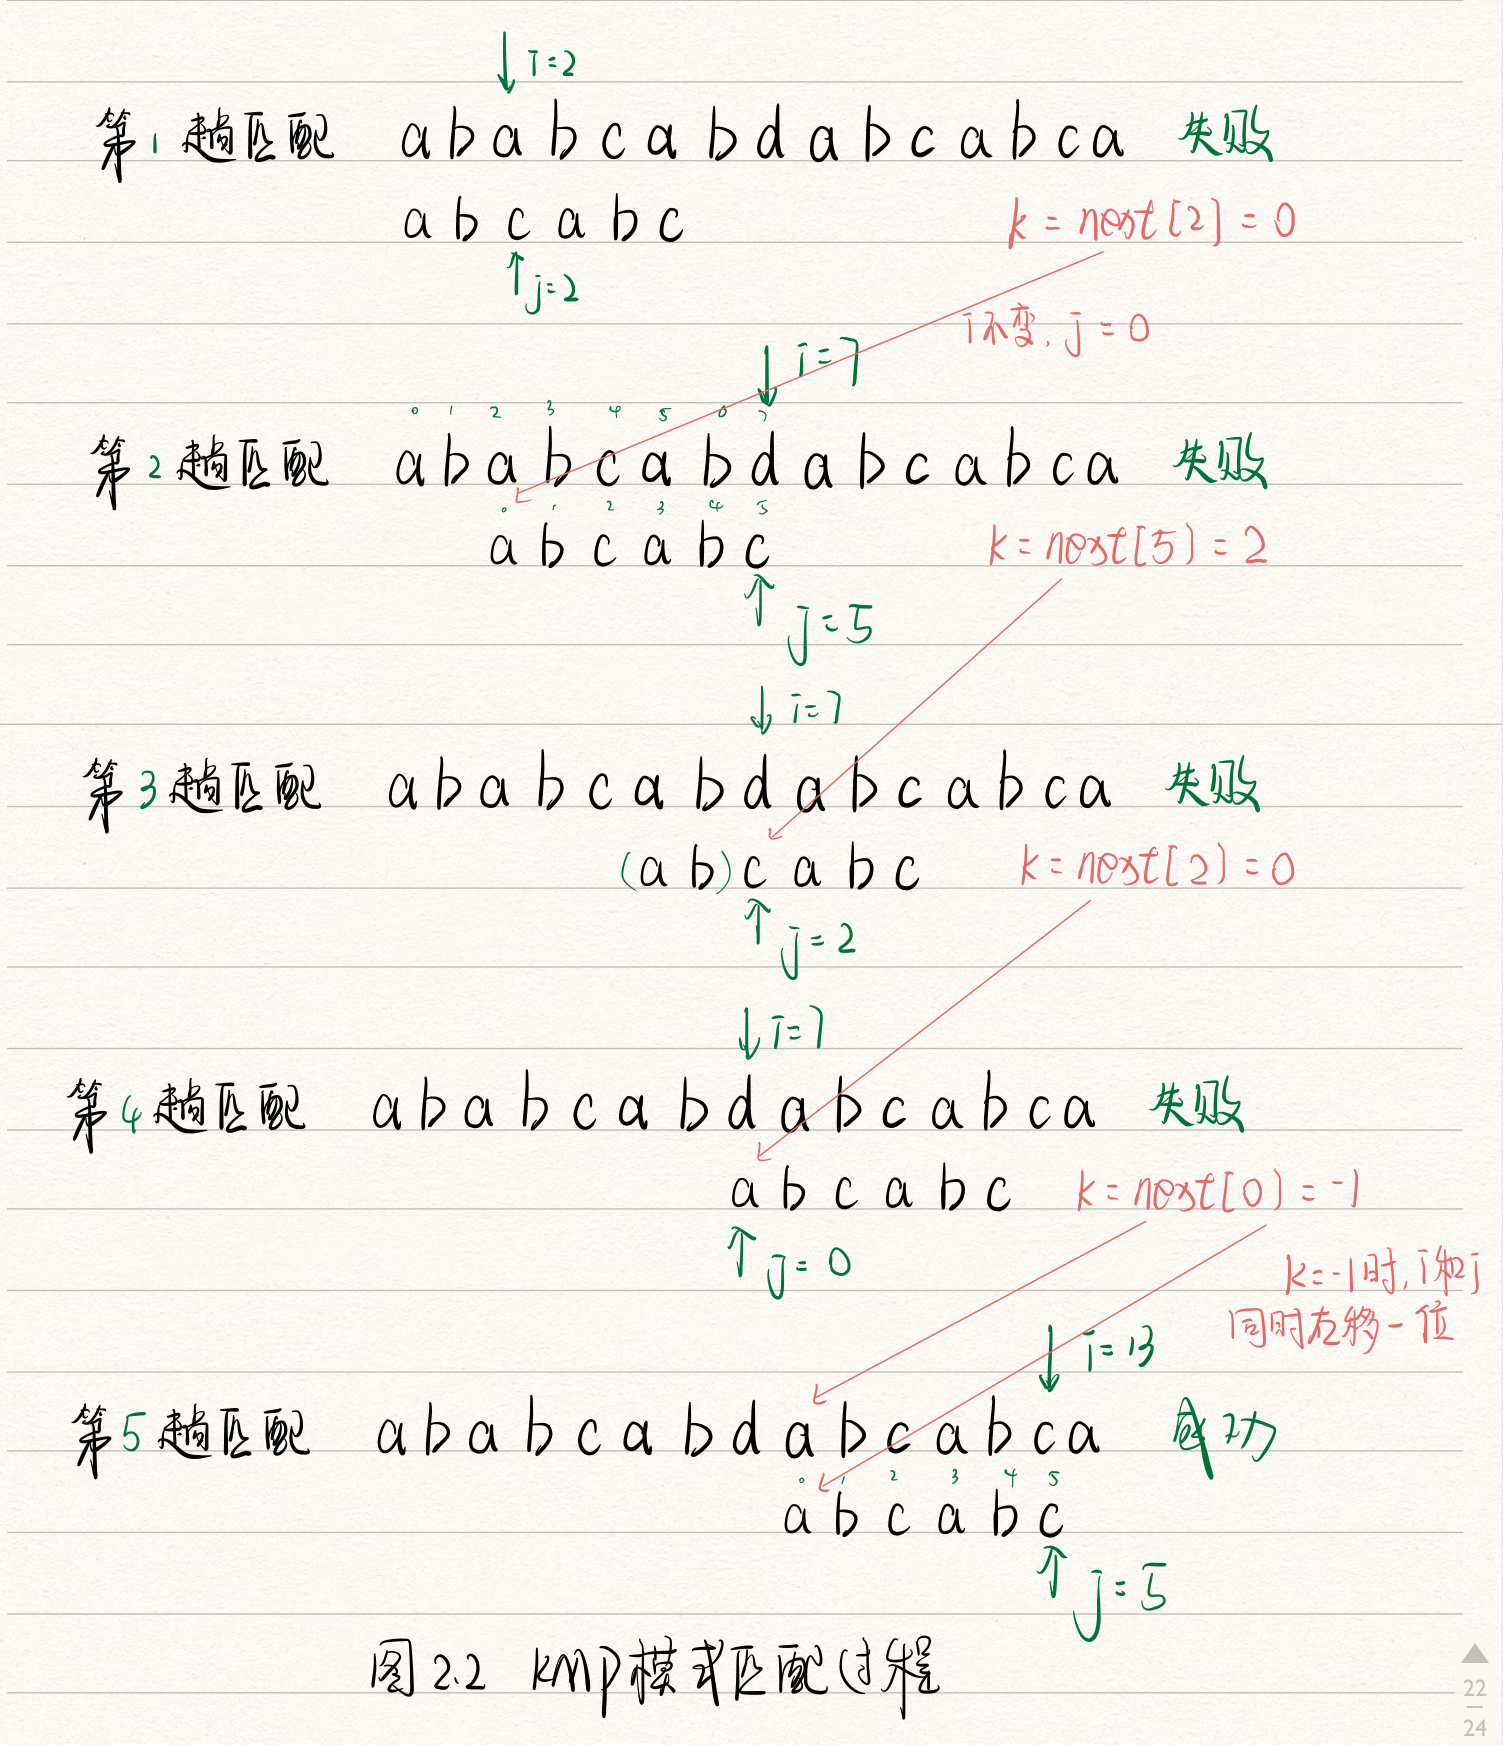 i=2
第1趟匹配 ababcabdabcabca 失败
abcabc k=next[2]=0
j=2
i不变, j=0
i=7
0 1 2 3 4 5 6 7
第2趟匹配 ababcabdabcabca 失败
0 1 2 3 4 5
abcabc k=next[5]=2
j=5
i=7
第3趟匹配 ababcabdabcabca 失败
(ab)cabc k=next[2]=0
j=2
i=7
第4趟匹配 ababcabdabcabca 失败
abcabc k=next[0]=-1
j=0
k=-1时, i和j
同时右移一位
i=13
第5趟匹配 ababcabdabcabca 成功
0 1 2 3 4 5
abcabc
j=5
图2.2 KMP模式匹配过程
22
24